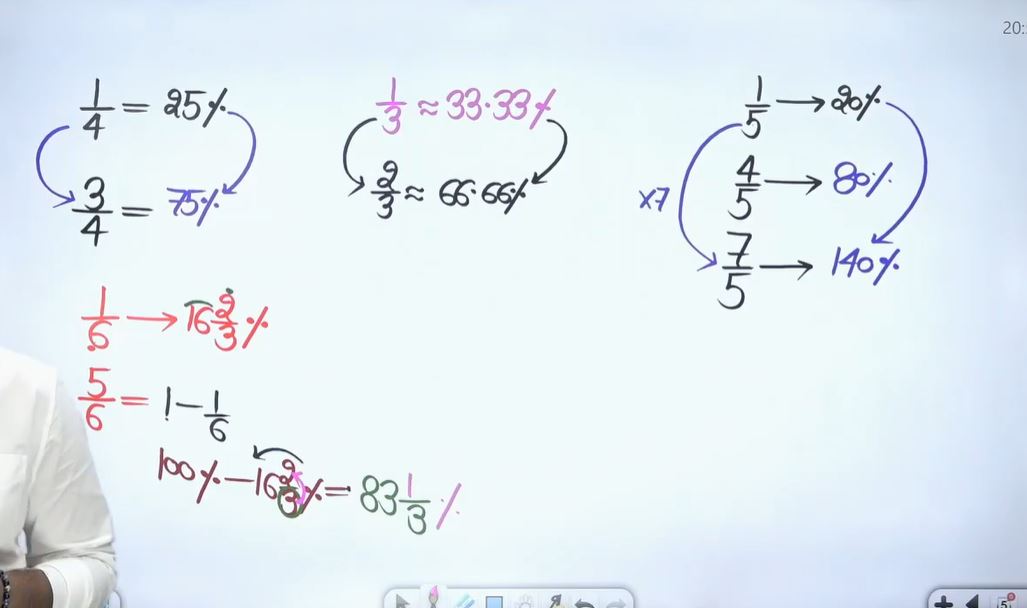 20:
1/4 = 25%
3/4 = 75%
1/3 ≈ 33.33%
2/3 ≈ 66.66%
1/5 → 20%
4/5 → 80%
x7
7/5 → 140%
1/6 → 16 2/3 %
5/6 = 1 - 1/6
100% - 16 2/3 % = 83 1/3 %